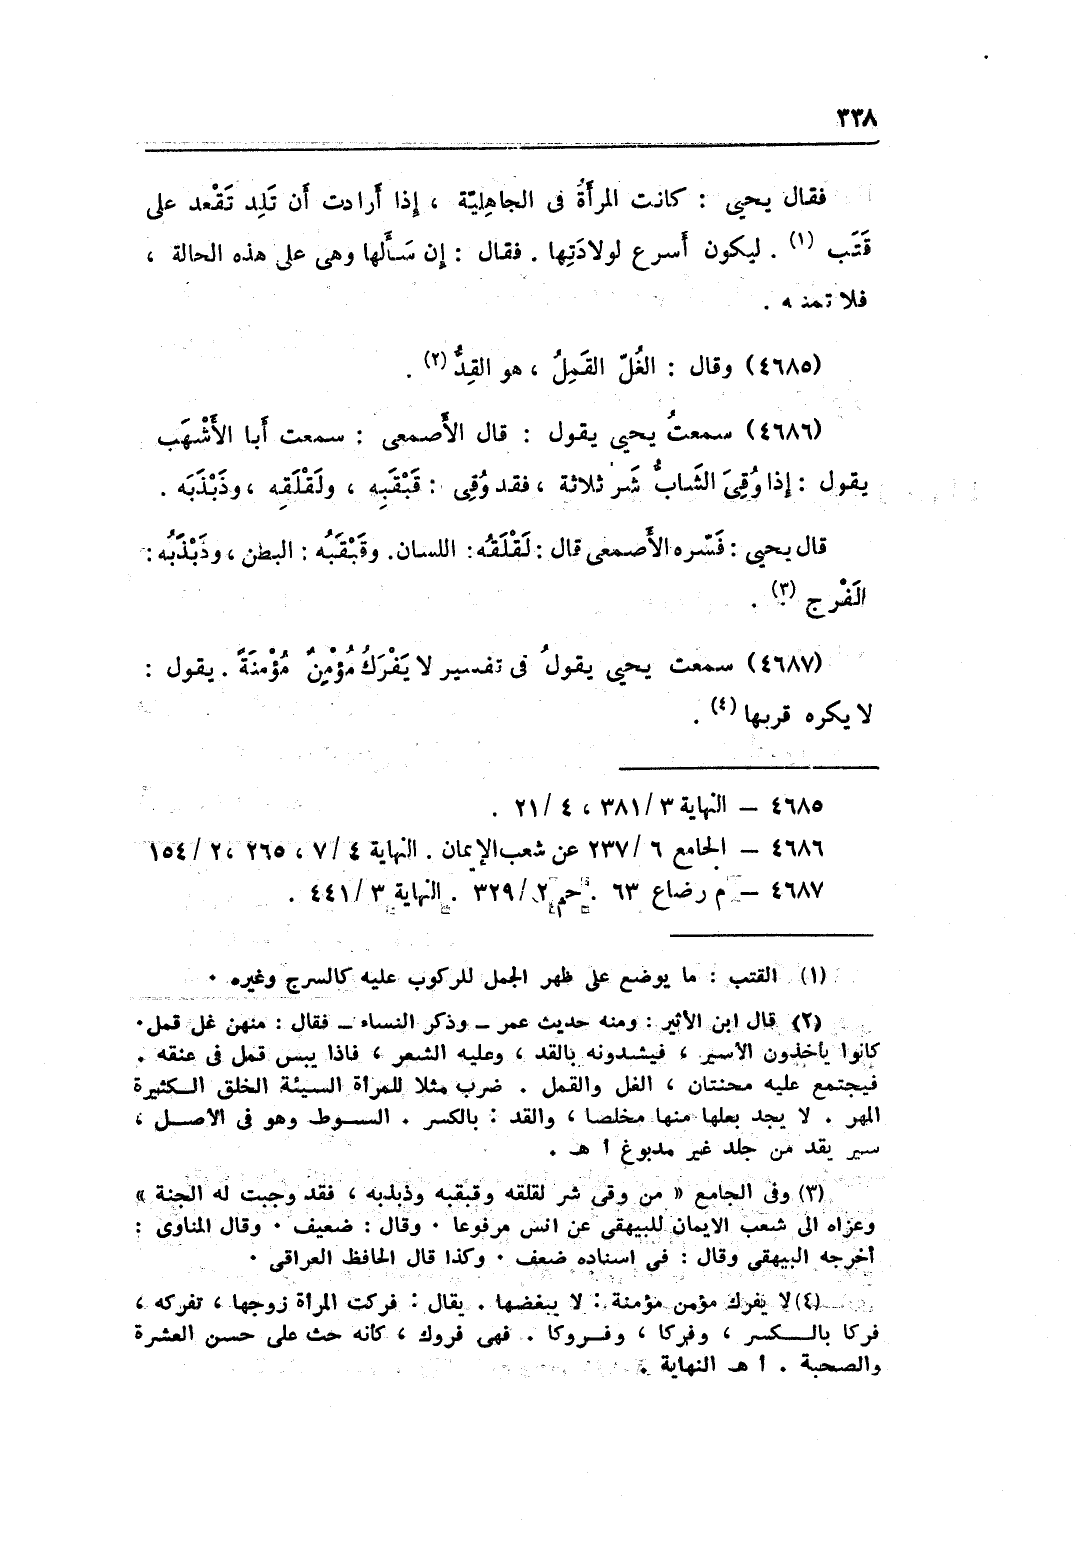 ٣٣٨
فقال يحيى : كانت المرأَةُ فى الجاهِليّة ، إذا أَرادت أَن تَلِد تَقْعد على
قَتَب (١) . ليكون أَسرع لولادَتِها . فقال : إن سَأَلها وهى على هذه الحالة ،
فلا تمنعه .
(٤٦٨٥) وقال : الغُلّ القَمِلُ ، هو القِدُّ (٢) .
(٤٦٨٦) سمعتُ يحيى يقول : قال الأَصمعى : سمعت أَبا الأَشْهَب
يقول : إذا وُقِىَ الشَابُّ شَرّ ثلاثة ، فقد وُقِى : قَبْقَبِه ، ولَقْلَقِه ، وذَبْذَبَه .
قال يحيى : فَسّره الأَصمعى قال : لَقْلَقُه : اللسان. وقَبْقَبُه : البطن ، وذَبْذَبُه :
الفَرْج (٣) .
(٤٦٨٧) سمعت يحيى يقولُ فى تفسير لا يَفْرَكُ مُؤْمِنٌ مُؤْمنَةً . يقول :
لا يكره قربها (٤) .
٤٦٨٥ – النهاية ٣/ ٣٨١ ، ٤ /٢١ .
٤٦٨٦ – الجامع ٦ /٢٣٧ عن شعب الإيمان . النهاية ٤ /٧ ، ٢٦٥ ، ٢ / ١٥٤
٤٦٨٧ – م رضاع ٦٣ . حم ٢ /٣٢٩ . النهاية ٣ /٤٤١ .
(١) القتب : ما يوضع على ظهر الجمل للركوب عليه كالسرج وغيره ٠
(٢) قال ابن الأثير : ومنه حديث عمر ــ وذكر النساء ــ فقال : منهن غل قمل٠
كانوا يأخذون الأسير ، فيشدونه بالقد ، وعليه الشعر ، فاذا يبس قمل فى عنقه .
فيجتمع عليه محنتان ، الغل والقمل . ضرب مثلا للمرأة السيئة الخلق الكثيرة
المهر . لا يجد بعلها منها مخلصا ، والقد : بالكسر . السوط وهو فى الأصل ،
سير يقد من جلد غير مدبوغ أ هـ .
(٣) وفى الجامع « من وقى شر لقلقه وقبقبه وذبذبه ، فقد وجبت له الجنة »
وعزاه الى شعب الايمان للبيهقى عن انس مرفوعا ٠ وقال : ضعيف ٠ وقال المناوى :
أخرجه البيهقى وقال : فى اسناده ضعف ٠ وكذا قال الحافظ العراقى ٠
(٤) لا يفرك مؤمن مؤمنة : لا يبغضها . يقال : فركت المرأة زوجها ، تفركه ،
فركا بالكسر ، وفركا ، وفروكا . فهى فروك ، كأنه حث على حسن العشرة
والصحبة . أ هـ النهاية .